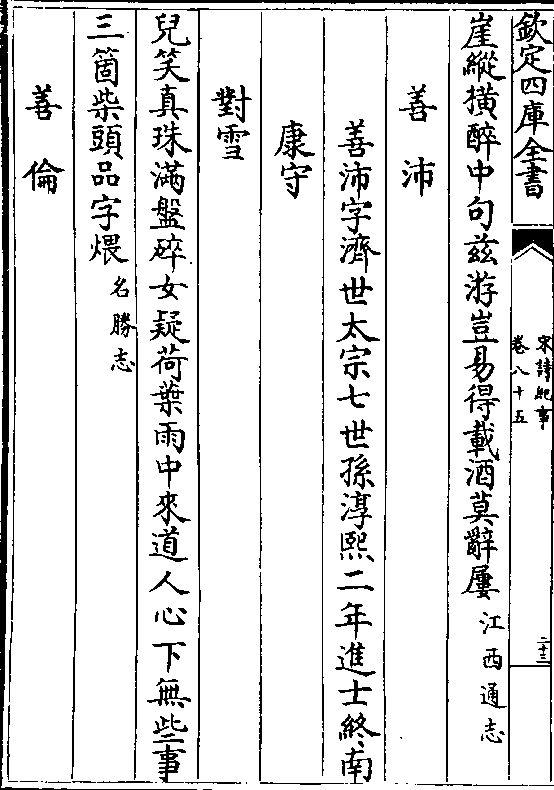 欽定四庫全書
宋詩紀事
卷八十五
二十三
崖縱橫醉中句兹游豈易得載酒莫辭屢江西通志
善沛
善沛字濟世太宗七世孫淳熙二年進士終南
康守
對雪
兒笑真珠滿盤碎女疑荷葉雨中來道人心下無些事
三箇柴頭品字煨名勝志
善倫